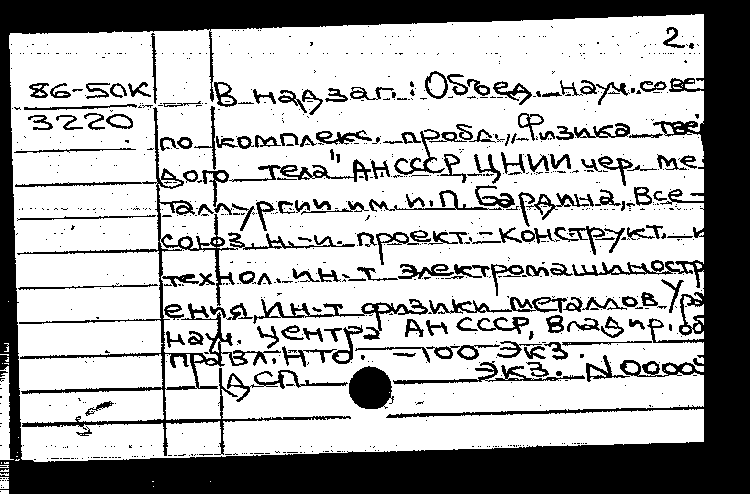 2.
86-50К В надзаг.: Объед. науч. сове
3220
по комплекс. пробл. „Физика твё
дого тела" АН СССР, ЦНИИ чер. ме
таллургии им. И.П. Бардина, Все-
союз. н.-и. проект.-конструкт. и
технол. ин-т электромашиностр
ения, Ин-т физики металлов Ура
науч. центра АН СССР, Владир. об
правл. НТО. -100 экз.
ДСП. Экз. N 0000